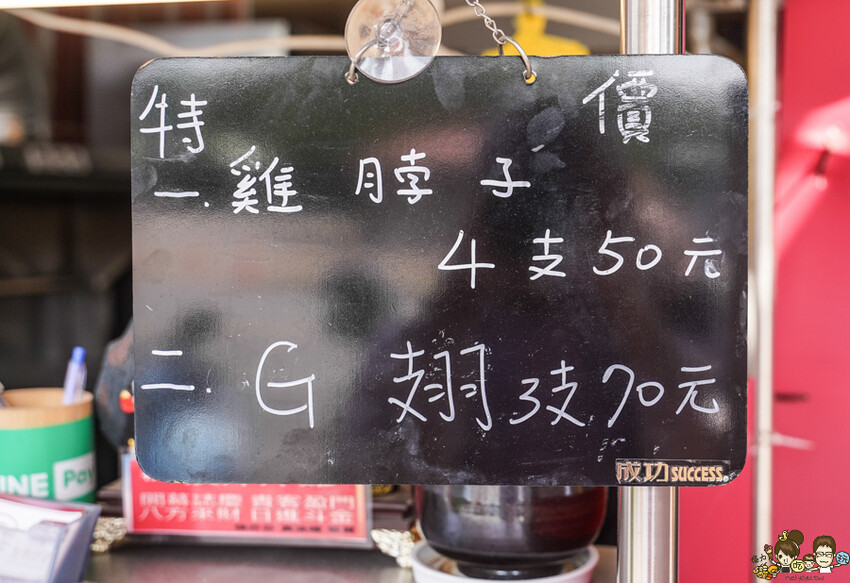 特 價
一. 雞 脖 子
4 支 50 元
二. G 翅 3支 70元
成功 SUCCESS.
INE Pay
開幕誌慶 貴客盈門
八方來財 日進斗金